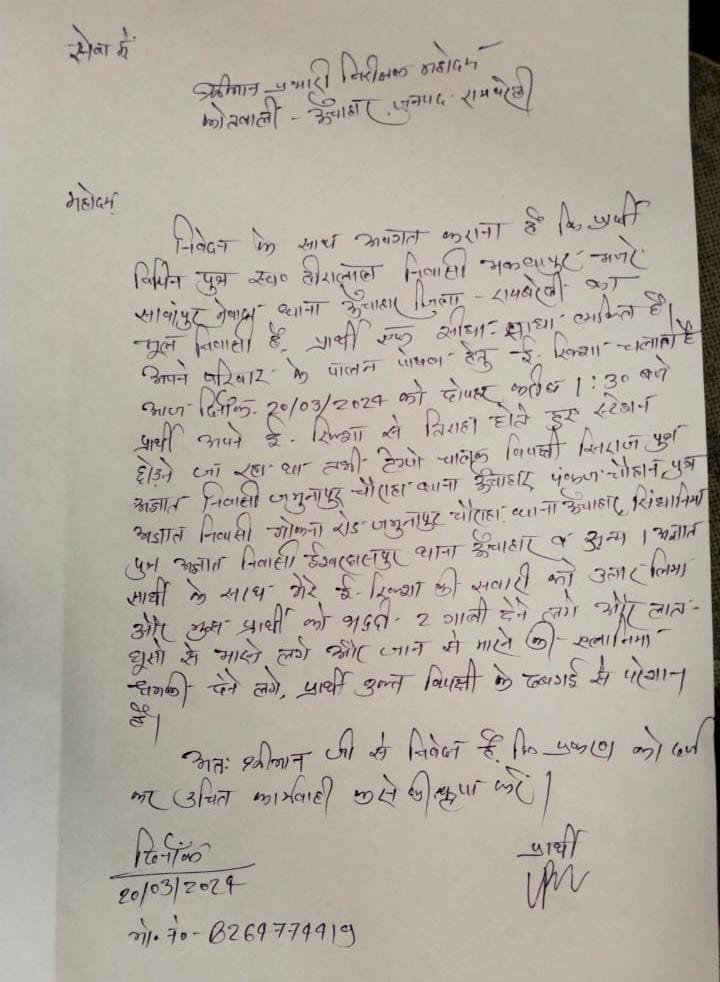 सेवा में
श्रीमान प्रभारी निरीक्षक महोदय
कोतवाली - ऊँचाहार, जनपद - रायबरेली
महोदय,
निवेदन के साथ अवगत कराना है कि प्रार्थी
विपिन पुत्र स्व० हीरालाल निवासी मजरे
सावांपुर नेवादा थाना ऊँचाहार जिला - रायबरेली का
मूल निवासी है, प्रार्थी एक सीधा-साधा व्यक्ति है।
अपने परिवार के पालन पोषण हेतु ई-रिक्शा चलाता है
आज दिनांक- 20/03/2024 को दोपहर करीब 1:30 बजे
प्रार्थी अपने ई-रिक्शा से तिराहा होते हुए स्टेशन
छोड़ने जा रहा था तभी टेम्पो चालक विपक्षी पुत्र
अज्ञात निवासी जमुनापुर चौराहा थाना ऊँचाहार पंकज चौहान पुत्र
अज्ञात निवासी गोकना रोड जमुनापुर चौराहा थाना ऊँचाहार,
पुत्र अज्ञात निवासी ईश्वरदासपुर थाना ऊँचाहार व अन्य । अज्ञात
साथी के साथ मेरे ई-रिक्शा की सवारी को उतार लिया
और मुझ प्रार्थी को भद्दी-2 गाली देने लगे और लात-
घूसों से मारने लगे और जान से मारने की
धमकी देने लगे, प्रार्थी उक्त विपक्षी के दबंगई से परेशान
है।
अतः श्रीमान जी से निवेदन है कि प्रकरण को दर्ज
कर उचित कार्यवाही करने की कृपा करें।
दिनाँक
20/03/2024
मो. नं०- 8264774419
प्रार्थी